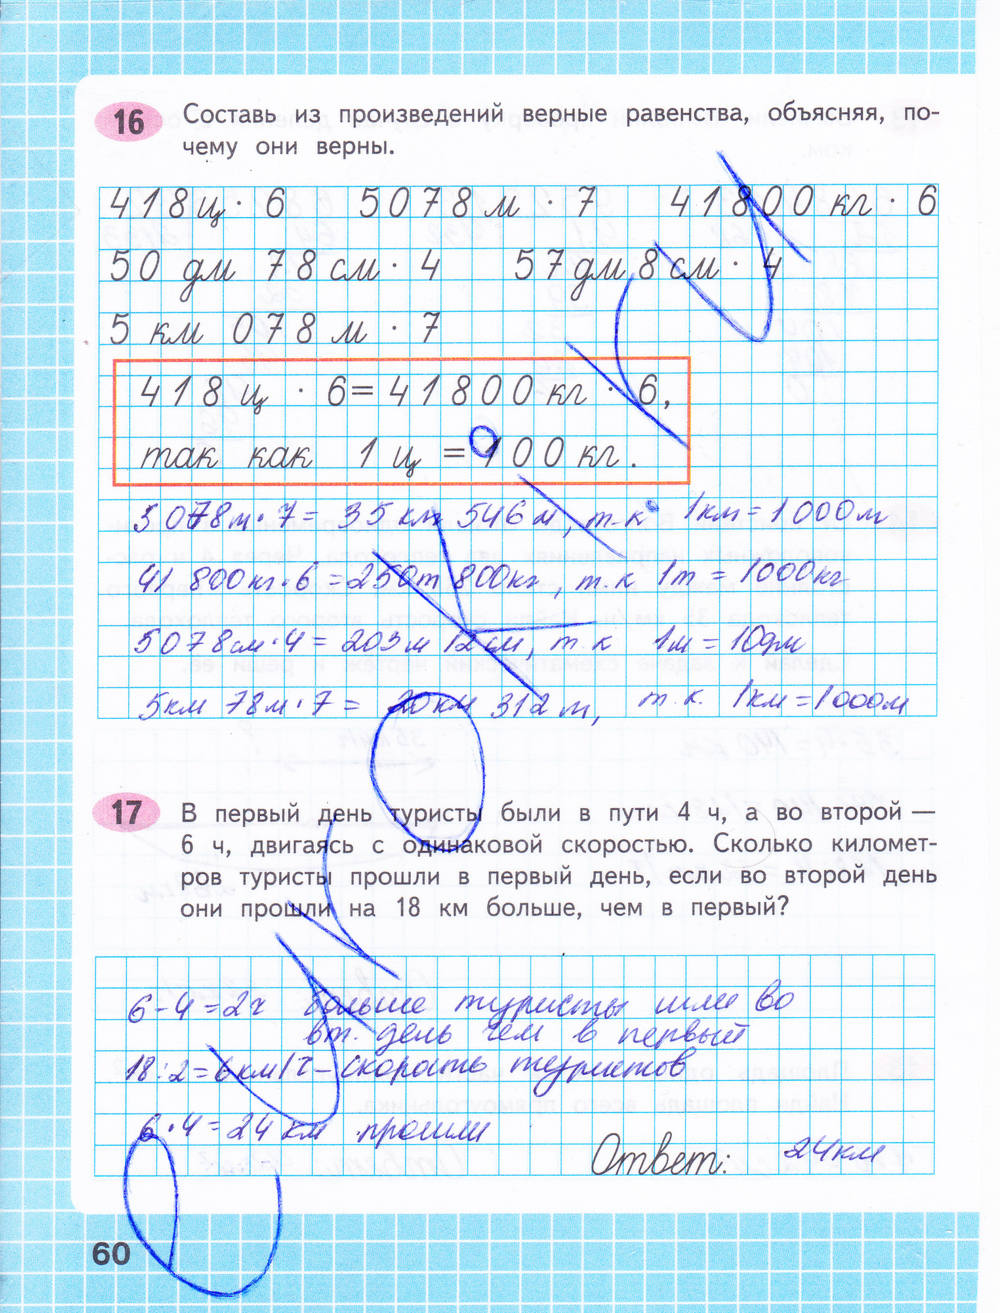 16 Составь из произведений верные равенства, объясняя, по-
чему они верны.
418 ц · 6 5078 м · 7 41800 кг · 6
50 дм 78 см · 4 57 дм 8 см · 4
5 км 078 м · 7
418 ц · 6 = 41800 кг · 6,
так как 1 ц = 100 кг.
5078 м · 7 = 35 км 546 м, т.к. 1 км = 1000 м
41 800 кг · 6 = 250 т 800 кг, т.к 1 т = 1000 кг
5078 см · 4 = 203 м 12 см, т.к 1 м = 10 дм
5 км 78 м · 7 = 20 км 312 м, т.к. 1 км = 1000 м
17 В первый день туристы были в пути 4 ч, а во второй —
6 ч, двигаясь с одинаковой скоростью. Сколько километ-
ров туристы прошли в первый день, если во второй день
они прошли на 18 км больше, чем в первый?
6 - 4 = 2 ч больше туристы шли во
вт. день чем в первый
18 : 2 = 6 км/ч - скорать туристов
6 · 4 = 24 км прошли
Ответ: 24 км
60